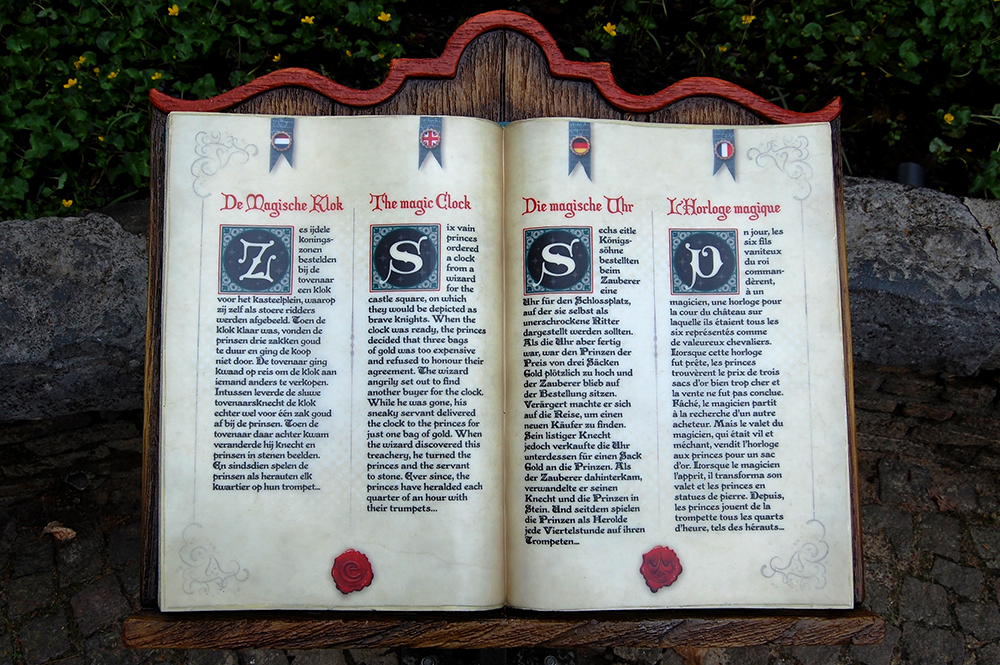 De Magische Klok
Zes ijdele
konings-
zonen
bestelden
bij de
tovenaar
een klok
voor het Kasteelplein, waarop
zij zelf als stoere ridders
werden afgebeeld. Toen de
klok klaar was, vonden de
prinsen drie zakken goud
te duur en ging de koop
niet door. De tovenaar ging
kwaad op reis om de klok aan
iemand anders te verkopen.
Intussen leverde de sluwe
tovenaarsknecht de klok
echter wel voor één zak goud
af bij de prinsen. Toen de
tovenaar daar achter kwam
veranderde hij knecht en
prinsen in stenen beelden.
En sindsdien spelen de
prinsen als herauten elk
kwartier op hun trompet...
The magic Clock
Six vain
princes
ordered
a clock
from a
wizard
for the
castle square, on which
they would be depicted as
brave knights. When the
clock was ready, the princes
decided that three bags
of gold was too expensive
and refused to honour their
agreement. The wizard
angrily set out to find
another buyer for the clock.
While he was gone, his
sneaky servant delivered
the clock to the princes for
just one bag of gold. When
the wizard discovered this
treachery, he turned the
princes and the servant
to stone. Ever since, the
princes have heralded each
quarter of an hour with
their trumpets...
Die magische Uhr
Sechs eitle
Königs-
söhne
bestellten
beim
Zauberer
eine
Uhr für den Schlossplatz,
auf der sie selbst als
unerschrockene Ritter
dargestellt werden sollten.
Als die Uhr aber fertig
war, war den Prinzen der
Preis von drei Säcken
Gold plötzlich zu hoch und
der Zauberer blieb auf
der Bestellung sitzen.
Verärgert machte er sich
auf die Reise, um einen
neuen Käufer zu finden.
Sein listiger Knecht
jedoch verkaufte die Uhr
unterdessen für einen Sack
Gold an die Prinzen. Als
der Zauberer dahinterkam,
verwandelte er seinen
Knecht und die Prinzen in
Stein. Und seitdem spielen
die Prinzen als Herolde
jede Viertelstunde auf ihren
Trompeten...
L'Horloge magique
Un jour, les
six fils
vaniteux
du roi
comman-
dèrent,
à un
magicien, une horloge pour
la cour du château sur
laquelle ils étaient tous les
six représentés comme
de valeureux chevaliers.
Lorsque cette horloge
fut prête, les princes
trouvèrent le prix de trois
sacs d'or bien trop cher et
la vente ne fut pas conclue.
Fâché, le magicien partit
à la recherche d'un autre
acheteur. Mais le valet du
magicien, qui était vil et
méchant, vendit l'horloge
aux princes pour un sac
d'or. Lorsque le magicien
l'apprit, il transforma son
valet et les princes en
statues de pierre. Depuis,
les princes jouent de la
trompette tous les quarts
d'heure, tels des hérauts...